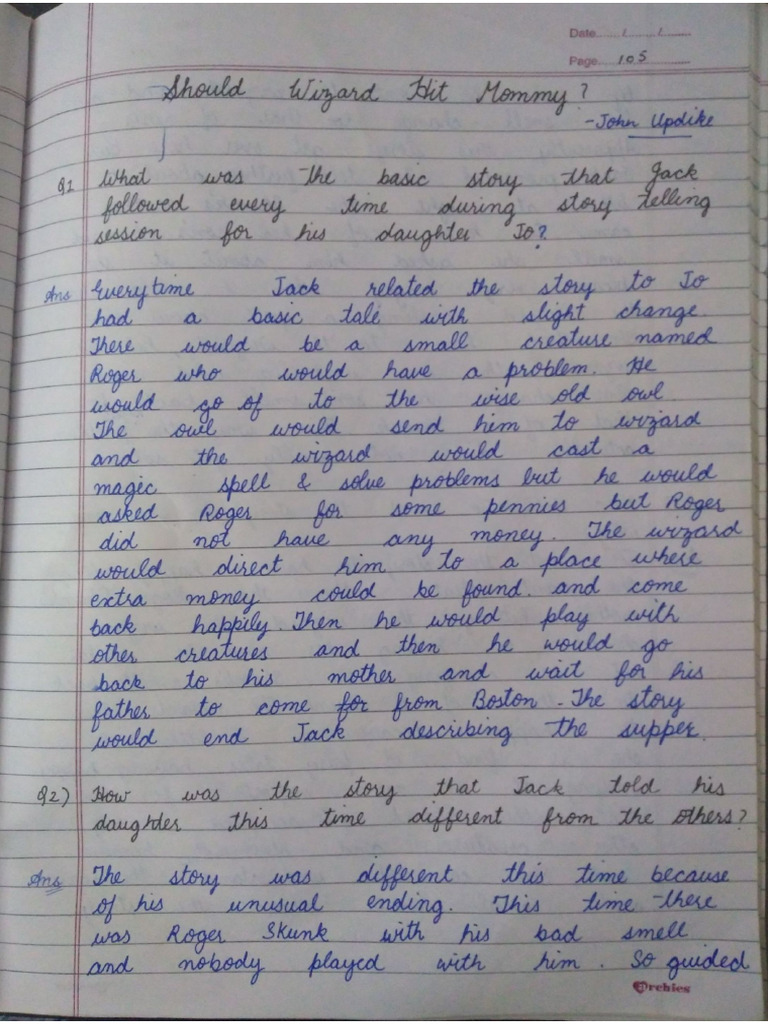 Date....../....../......
Page...105...
Should Wizard Hit Mommy?
-John Updike
Q1 What was the basic story that Jack
followed every time during story telling
session for his daughter Jo?
Ans Everytime Jack related the story to Jo
had a basic tale with slight change.
There would be a small creature named
Roger who would have a problem. He
would go of to the wise old owl.
The owl would send him to wizard
and the wizard would cast a
magic spell & solve problems but he would
asked Roger for some pennies but Roger
did not have any money. The wizard
would direct him to a place where
extra money could be found. and come
back happily. Then he would play with
other creatures and then he would go
back to his mother and wait for his
father to come for from Boston. The story
would end Jack describing the supper.
Q2) How was the story that Jack told his
daughter this time different from the others?
Ans The story was different this time because
of his unusual ending. This time there
was Roger Skunk with his bad smell
and nobody played with him. So guided
Archies